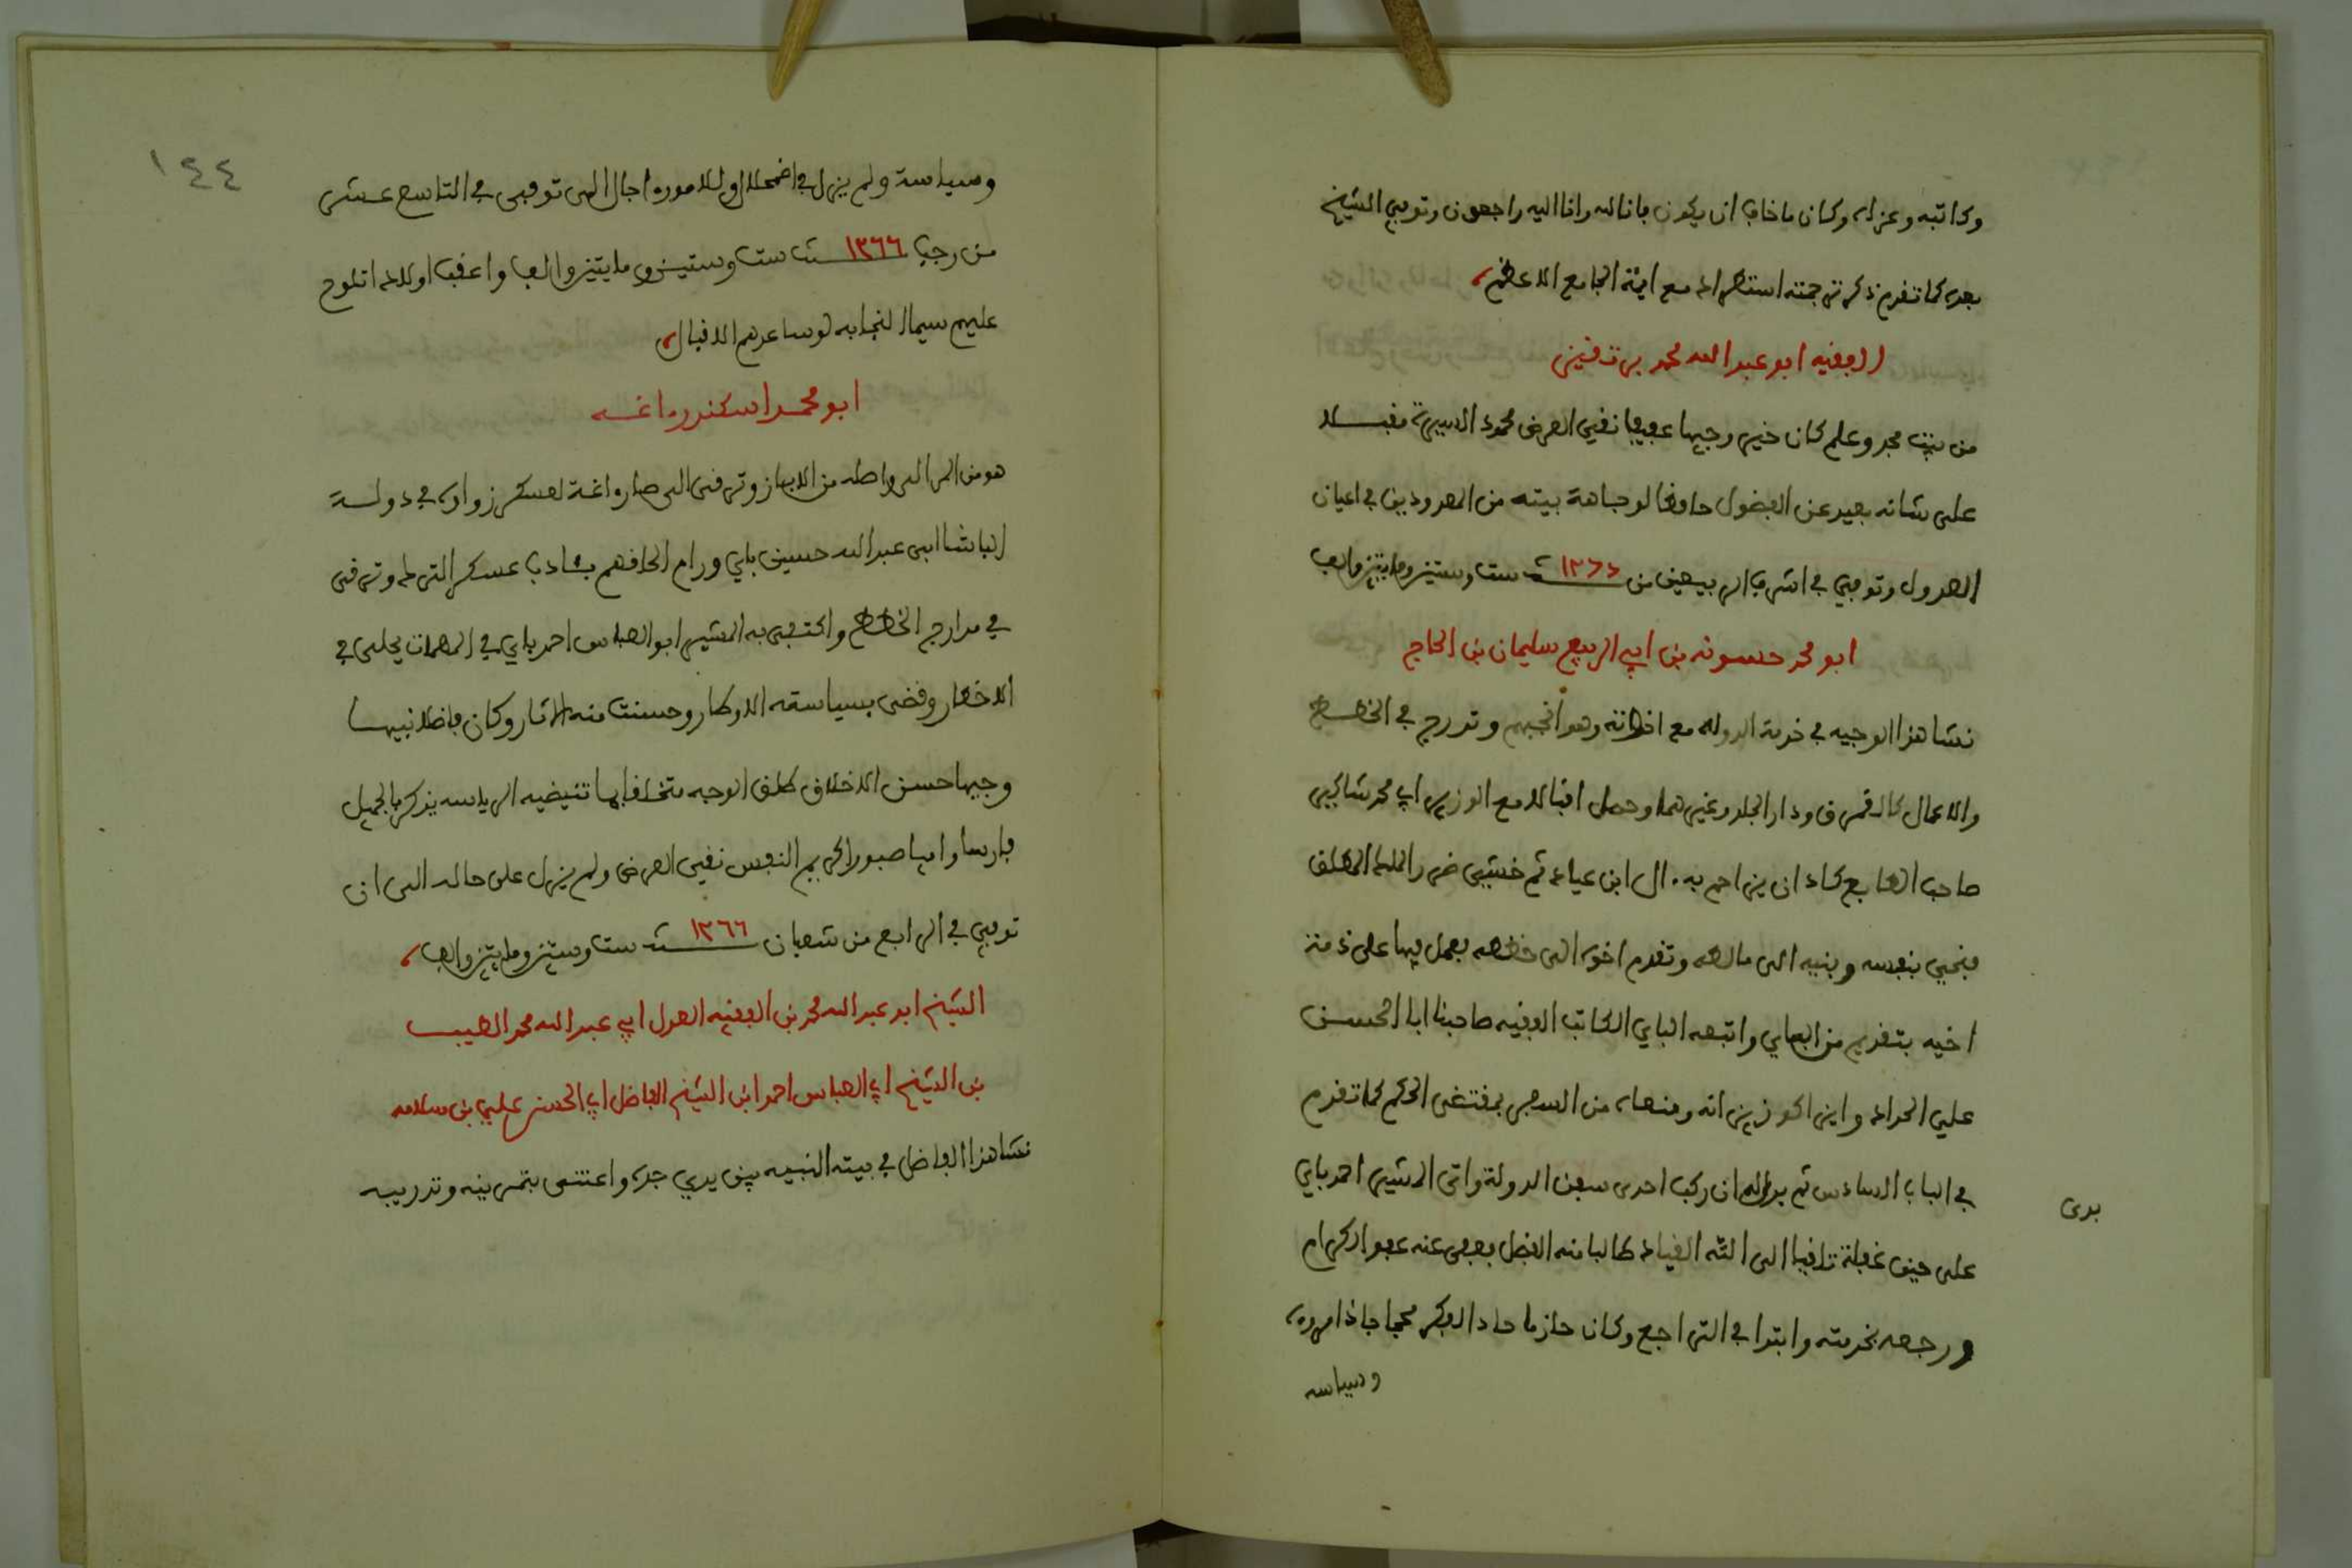 وكاتبه وعزاه وكان ما خاف ان يكون فانا لله وانا اليه راجعون وتوفي الشيخ
بعده كما تقدم ذكر ترجمته استطرادا مع ايمة الجامع الاعظم
الفقيه ابو عبد الله محمد بن
من بيت مجد وعلم كان خيرا وجيها عفيفا نقي العرض محمود السيرة مقبلا
على شانه بعيد عن الفضول حافظا لوجاهة بيته من المعدودين في اعيان
العدول وتوفي في اشرف الربيعين من سنة ١٢٦٦ ست وستين ومايتين والف
ابو محمد حسونه بن ابي الربيع سليمان بن الحاج
نشا هذا الوجيه في خدمة الدوله مع اخوته وهو انجبهم وتدرج في الخطط
والاعمال كالقمرق ودار الجلد وغيرهما وحصل اقبالا مع الوزير ابي محمد شاكير
صاحب الطابع كاد ان يزاحم به ال ابن عياد ثم خشي ضرر الملك المطلق
فنجي بنفسه وبنيه الى مالطه وتقدم اخوه الى خططه يعمل فيها على ذمة
اخيه بتقديم من الباي واتبعه الباي الكاتب الفقيه صاحبنا ابا الحسن
علي الحداد واين الحوزين انه ومنعاه من السجن بمقتضى الحكم كما تقدم
في الباب السادس ثم بدا له ان ركب احدى سفن الدولة واتى المشير احمد باي
بدى
على حين غفلة تلافيا الى الله القياد طالبا منه الفضل فعفى عنه عفوا كرام
ورجعه لخدمته وابتدا في التراجع وكان حازما حاد الفكر محجاجا ذا مروه
وسياسه
١٤٤
وسياسة ولم يزل في اضمحلال وللامور اجال الى توفي في التاسع عشر
من رجب سنة ١٢٦٦ ست وستين ومايتين والف واعقب اولادا تلوح
عليهم سيما النجابه لو ساعدهم الاقبال
ابو محمد اسكندر اغه
هو من المرالي واصله من الاباز وترقى الى صار اغة لعسكر زواوه في دولة
الباشا ابي عبد الله حسين باي ورام الحافهم بشادب عسكر الترك وترقى
في مدارج الخطط واكتفى به المشير ابو العباس احمد باي في المهمات يجلى في
الاخطار وقضى بسياسته الاوطار وحسنت منه الاثار وكان فاضلا نبيها
وجيها حسن الاخلاق طلق الوجه متخلقا بما تقتضيه الرياسه يذكر بالجميل
فارسا راميا صبورا كريم النفس نقي العرض ولم يزل على حاله الى ان
توفي في الرابع من شعبان سنة ١٢٦٦ ست وستين ومايتين والف
الشيخ ابو عبد الله محمد بن الفقيه العدل ابي عبد الله محمد الطيب
بن الشيخ ابي العباس احمد ابن الشيخ الفاضل ابي الحسن علي بن سلامه
نشا هذا الفاضل في بيته النبيه بين يدي جده واعتنى بتمرينه وتدريبه